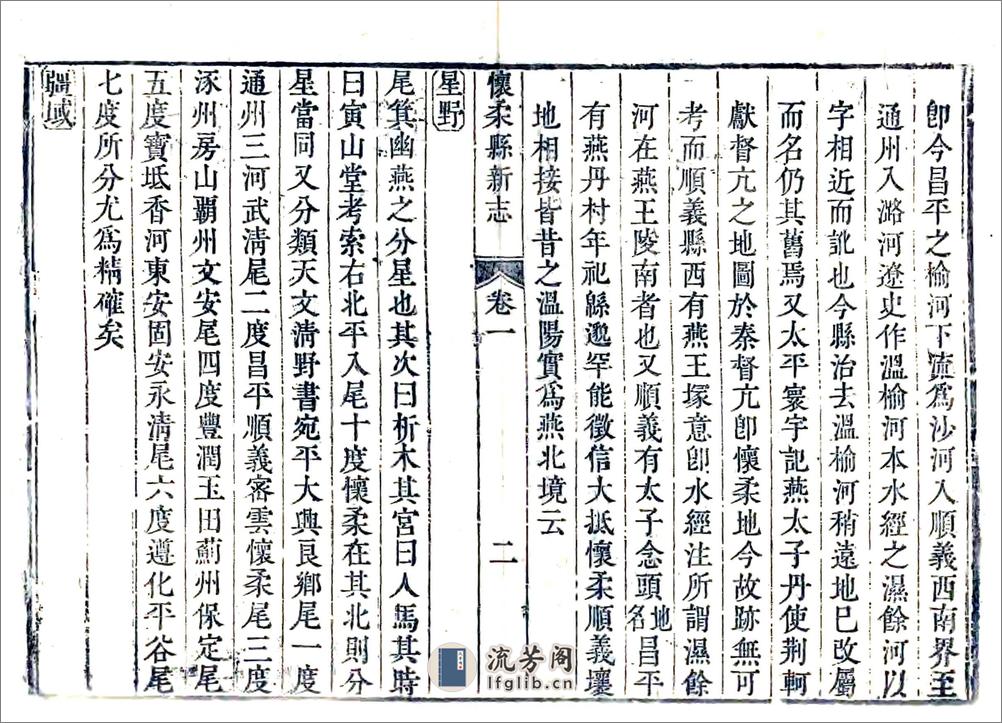 卽今昌平之榆河下流爲沙河入順義西南界至
通州入潞河遼史作溫榆河本水經之濕餘河以
字相近而訛也今縣治去溫榆河稍遠地已改屬
而名仍其舊焉又太平寰宇記燕太子丹使荆軻
獻督亢之地圖於秦督亢卽懷柔地今故跡無可
考而順義縣西有燕王塚意卽水經注所謂濕餘
河在燕王陵南者也又順義有太子念頭地名昌平
有燕丹村年祀緜邈罕能徵信大抵懷柔順義壤
地相接皆昔之溫陽實爲燕北境云
懷柔縣新志 卷一 二
星野
尾箕幽燕之分星也其次曰析木其宮曰人馬其時
曰寅山堂考索右北平入尾十度懷柔在其北則分
星當同又分類天文淸野書宛平大興良鄉尾一度
通州三河武淸尾二度昌平順義密雲懷柔尾三度
涿州房山霸州文安尾四度豐潤玉田薊州保定尾
五度寶坻香河東安固安永淸尾六度遵化平谷尾
七度所分尤爲精確矣
疆域
流芳阁
lfglib.cn